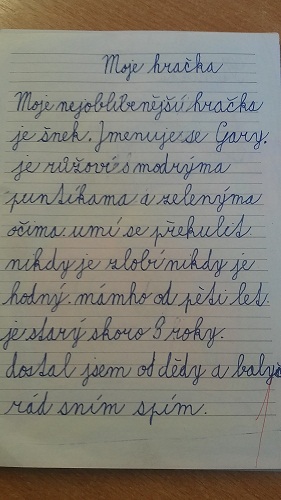 Moje hračka
Moje nejoblíbenější hračka
je šnek. Jmenuje se Gary.
je růžoví s modrýma
puntíkama a zelenýma
očima. umí se překulit
nikdy je zlobí nikdy je
hodný. mámho od pěti let.
je starý skoro 3 roky.
dostal jsem od dědy a baly
rád sním spím.